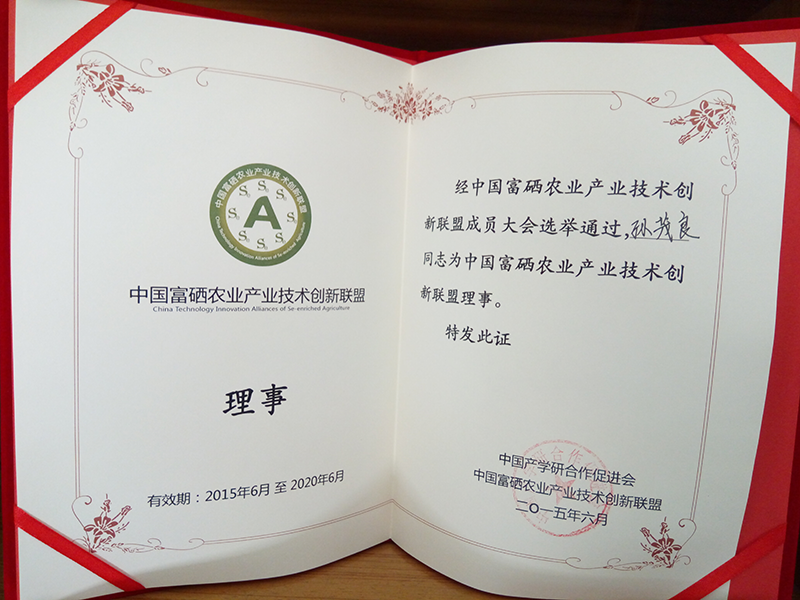 中国富硒农业产业技术创新联盟
China Technology Innovation Alliances of Se-enriched Agriculture
A
Se Se Se Se Se Se Se Se
中国富硒农业产业技术创新联盟
China Technology Innovation Alliances of Se-enriched Agriculture
理事
有效期：2015年6月 至 2020年6月
经中国富硒农业产业技术创
新联盟成员大会选举通过，孙茂良
同志为中国富硒农业产业技术创
新联盟理事。
特发此证
中国产学研合作促进会
中国富硒农业产业技术创新联盟
二〇一五年六月